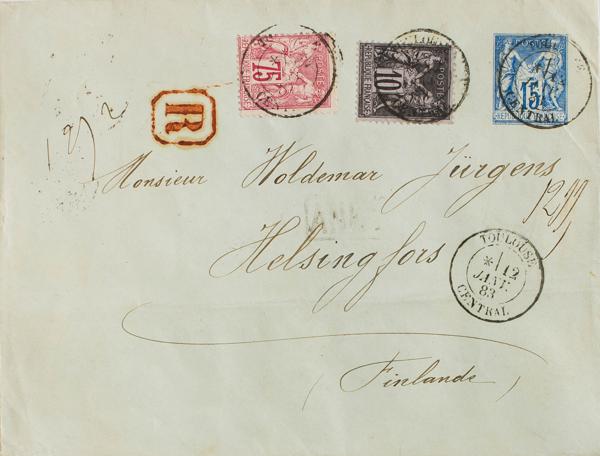 75
10
POSTES
REPUBLIQUE FRANÇAISE
15
CENTRAL
R
Monsieur Woldemar Jürgens
1299
Helsingfors
TOULOUSE
12
JANV.
83
CENTRAL
(Finlande)